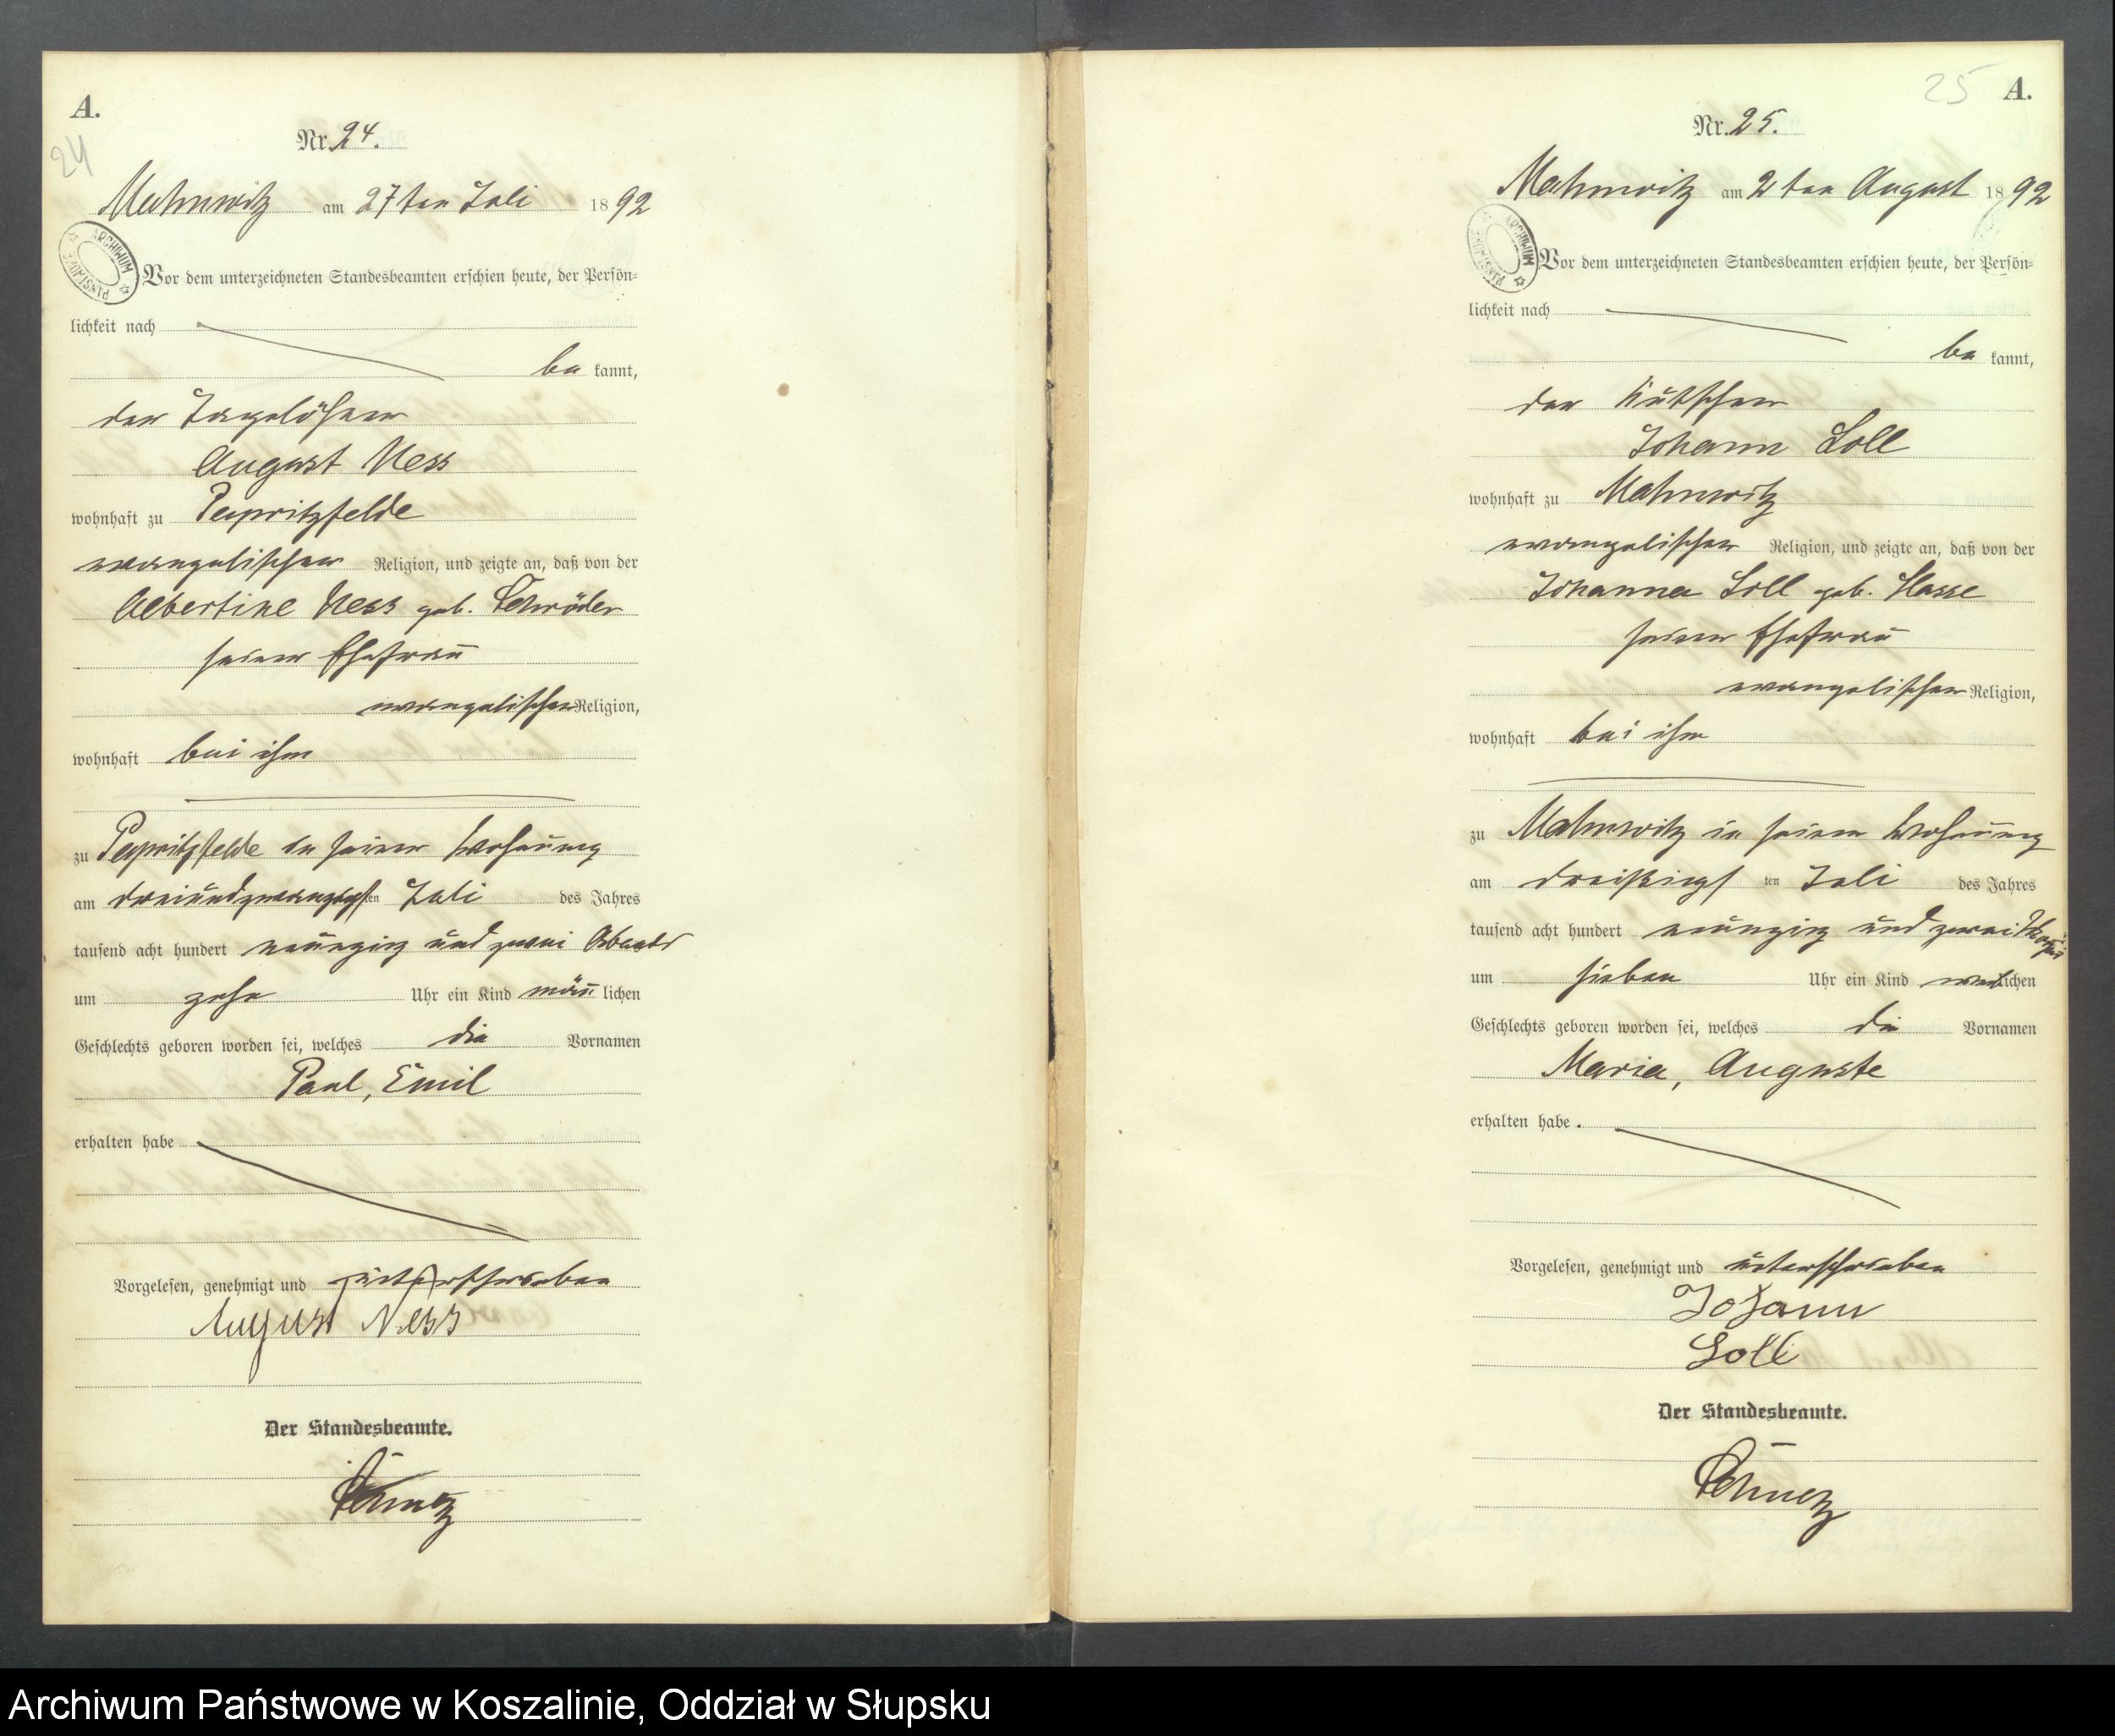 A.
24
Nr. 24.
Mahnwitz am 27ten Juli 1892
ARCHIWUM PAŃSTWOWE
Vor dem unterzeichneten Standesbeamten erschien heute, der Persön-
lichkeit nach
be kannt,
der Tagelöhner
August Ness
wohnhaft zu Papritzfelde
evangelischer Religion, und zeigte an, daß von der
Albertine Ness geb. Schröder
seiner Ehefrau
evangelischer Religion,
wohnhaft bei ihm
zu Papritzfelde in seiner Wohnung
am dreiundzwanzigsten Juli des Jahres
tausend acht hundert neunzig und zwei Abends
um zehn Uhr ein Kind männlichen
Geschlechts geboren worden sei, welches die Vornamen
Paul, Emil
erhalten habe
Vorgelesen, genehmigt und unterschrieben
August Ness
Der Standesbeamte.
25
A.
Nr. 25.
Mahnwitz am 2ten August 1892
ARCHIWUM PAŃSTWOWE
Vor dem unterzeichneten Standesbeamten erschien heute, der Persön-
lichkeit nach
be kannt,
der Kutscher
Johann Loll
wohnhaft zu Mahnwitz
evangelischer Religion, und zeigte an, daß von der
Johanna Loll geb. Hasse
seiner Ehefrau
evangelischer Religion,
wohnhaft bei ihm
zu Mahnwitz in seiner Wohnung
am dreißigs ten Juli des Jahres
tausend acht hundert neunzig und zwei
um sieben Uhr ein Kind weiblichen
Geschlechts geboren worden sei, welches die Vornamen
Maria, Auguste
erhalten habe.
Vorgelesen, genehmigt und unterschrieben
Johann
Loll
Der Standesbeamte.
Archiwum Państwowe w Koszalinie, Oddział w Słupsku